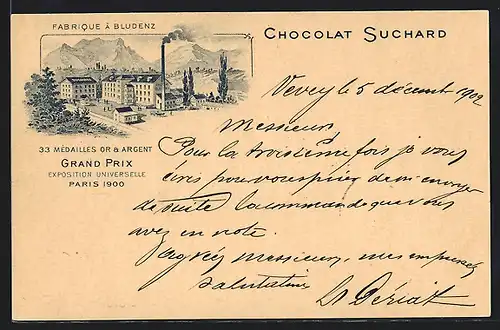 FABRIQUE À BLUDENZ
CHOCOLAT SUCHARD
33 MÉDAILLES OR & ARGENT
GRAND PRIX
EXPOSITION UNIVERSELLE
PARIS 1900
Vevey le 5 décembre 1902
Messieurs,
Pour la troisième fois je vous
écris pour vous prier de m'envoyer
de suite la commande que vous
avez en note.
Agréez messieurs, mes empressées
salutations